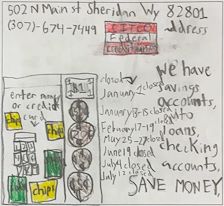 502 N Main st Sheridan Wy 82801
(307)-674-7449
address
Federal
credit union
closed
January 1 closed
We have
savings
accounts,
auto
loans,
checking
accounts,
SAVE MONEY,
enter money
or credit
card
chips
chips
chips
$1
January 13-15 closed
February 17-19
May 25-27 closed
June 19 closed
July 4 closed
July 12 closed